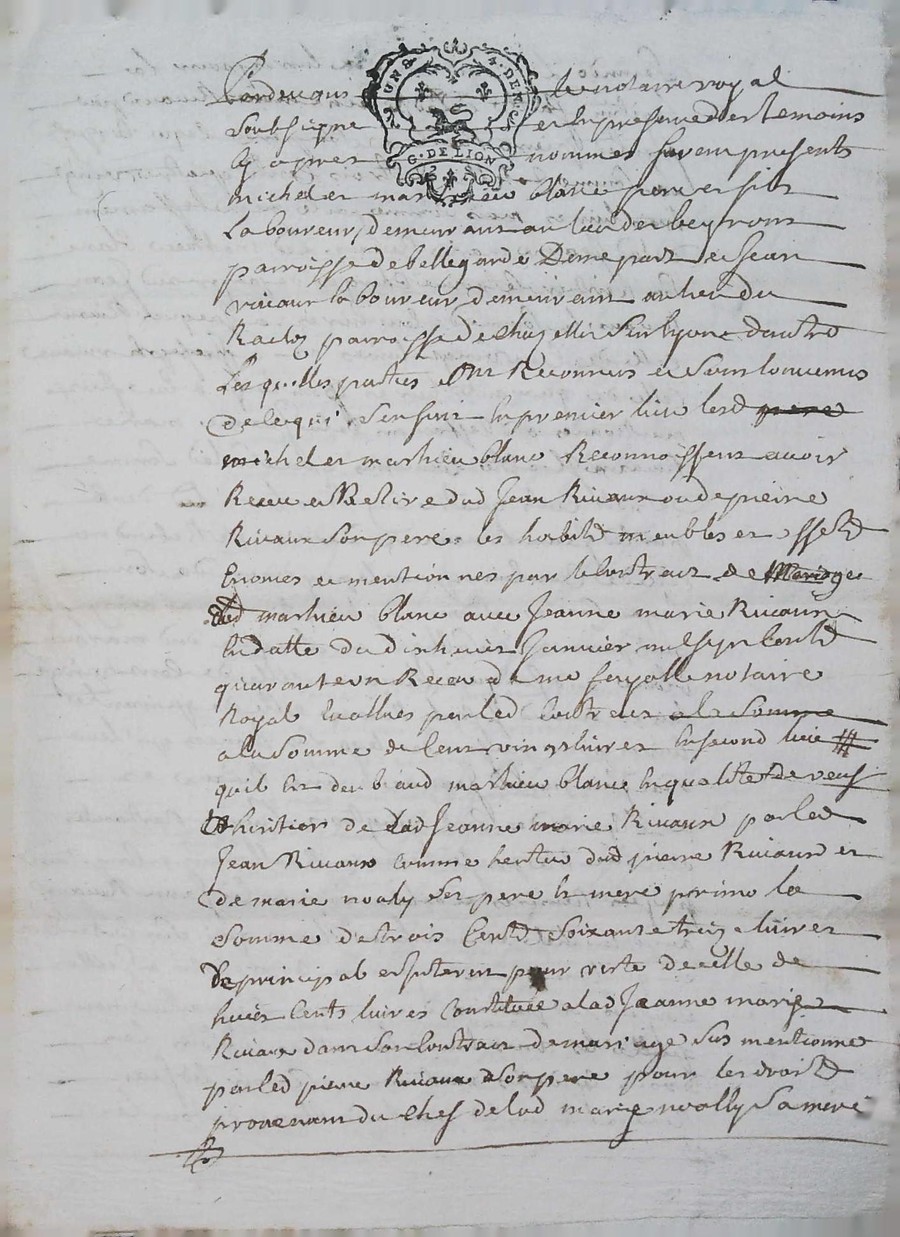 UNS. 4. DEN.
G. DE LION
Pardevant le notaire royal
soubsigne et en presence des temoins
cy apres nommes furent presents
michel et mathieu blanc pere et fils
laboureurs demeurants au lieu de beyrons
parroisse de bellegarde d'une part et Jean
rivaux laboureur demeurant au lieu du
parroisse de Chazelles sur lyon d'autre
lesquelles parties ont Reconnus et sont convenus
de ce qui s'ensuit en premier lieu lesd pere
michel et mathieu blanc Reconnoissent avoir
Receu et Retire dud Jean Rivaux ou de pierre
Rivaux son pere les habits meubles et effets
enonces et mentionnes par le contract de Mariage
dud mathieu blanc avec Jeanne marie Rivaux
en datte du dixhuit Janvier mil sept cents
quarante un Receu de me fayolle notaire
Royal evalues par led contract a la somme
a la somme de cent vingt livres en second lieu
qu'il est deub aud mathieu blanc en qualité de veuf
et heritier de lad Jeanne marie Rivaux par led
Jean Rivaux comme heritier dud pierre Rivaux et
de marie noally ses pere et mere primo la
somme de trois cents soixante treize livres
de principal et interest pour reste de celle de
huit cents livres constituee a lad Jeanne marie
Rivaux dans son contract de mariage sus mentionné
par led pierre Rivaux son pere pour les droits
provenant du chef de lad marie noally sa mere